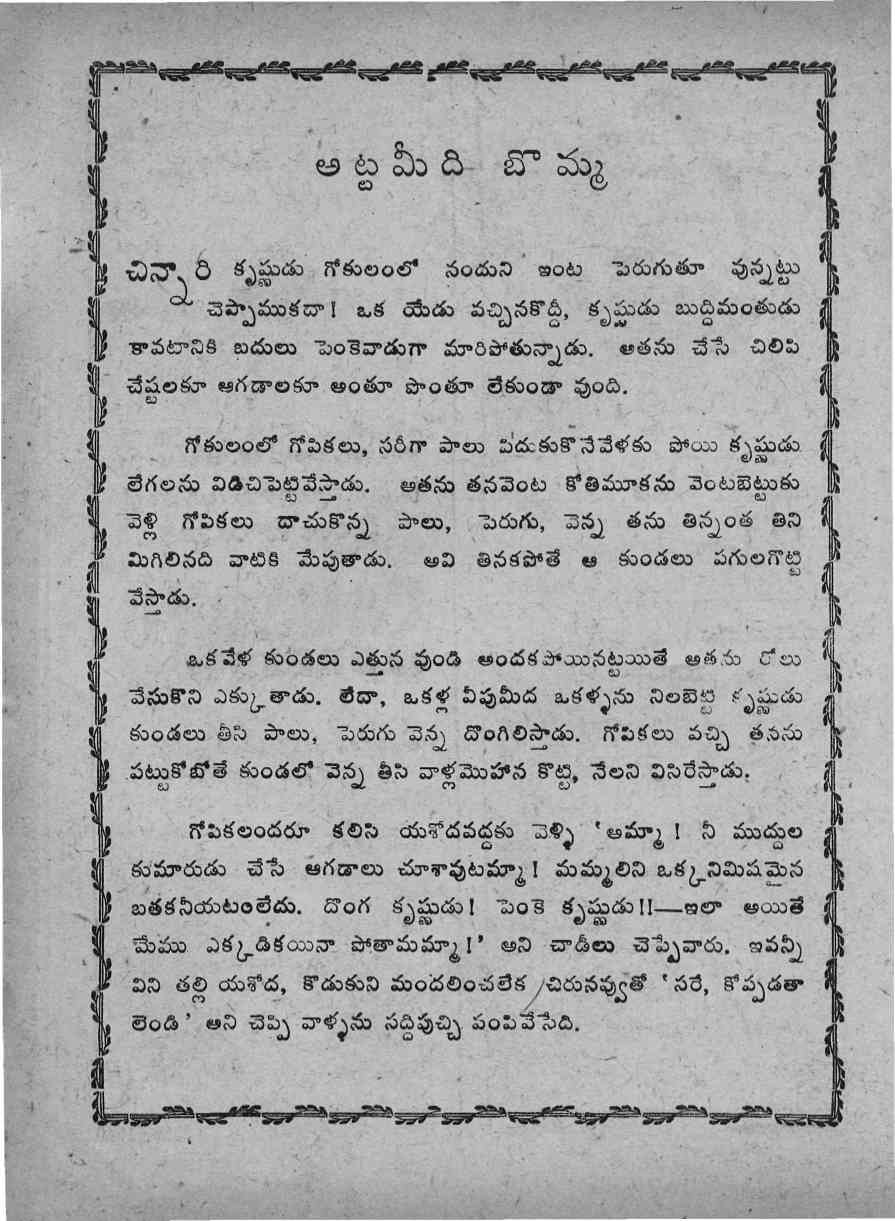 అట్టమీది బొమ్మ
చిన్నారి కృష్ణుడు గోకులంలో నందుని ఇంట పెరుగుతూ వున్నట్టు
చెప్పాముకదా! ఒక యేడు వచ్చినకొద్దీ, కృష్ణుడు బుద్ధిమంతుడు
కావటానికి బదులు పెంకెవాడుగా మారిపోతున్నాడు. అతను చేసే చిలిపి
చేష్టలకూ ఆగడాలకూ అంతూ పొంతూ లేకుండా వుంది.
గోకులంలో గోపికలు, సరీగా పాలు పిదుకుకొనేవేళకు పోయి కృష్ణుడు
లేగలను విడిచిపెట్టివేస్తాడు. అతను తనవెంట కోతిమూకను వెంటబెట్టుకు
వెళ్లి గోపికలు దాచుకొన్న పాలు, పెరుగు, వెన్న తను తిన్నంత తిని
మిగిలినది వాటికి మేపుతాడు. అవి తినకపోతే ఆ కుండలు పగులగొట్టి
వేస్తాడు.
ఒకవేళ కుండలు ఎత్తున వుండి అందకపోయినట్టయితే అతను రోలు
వేసుకొని ఎక్కుతాడు. లేదా, ఒకళ్ల వీపుమీద ఒకళ్ళను నిలబెట్టి కృష్ణుడు
కుండలు తీసి పాలు, పెరుగు వెన్న దొంగిలిస్తాడు. గోపికలు వచ్చి తనను
పట్టుకోబోతే కుండలో వెన్న తీసి వాళ్లమొహాన కొట్టి, నేలని విసిరేస్తాడు.
గోపికలందరూ కలిసి యశోదవద్దకు వెళ్ళి ‘అమ్మా! నీ ముద్దుల
కుమారుడు చేసే ఆగడాలు చూశావుటమ్మా! మమ్మలిని ఒక్కనిమిషమైన
బతకనీయటంలేదు. దొంగ కృష్ణుడు! పెంకె కృష్ణుడు!!—ఇలా అయితే
మేము ఎక్కడికయినా పోతామమ్మా!’ అని చాడీలు చెప్పేవారు. ఇవన్నీ
విని తల్లి యశోద, కొడుకుని మందలించలేక చిరునవ్వుతో ‘సరే, కోప్పడతా
లెండి’ అని చెప్పి వాళ్ళను సద్దిపుచ్చి పంపివేసేది.